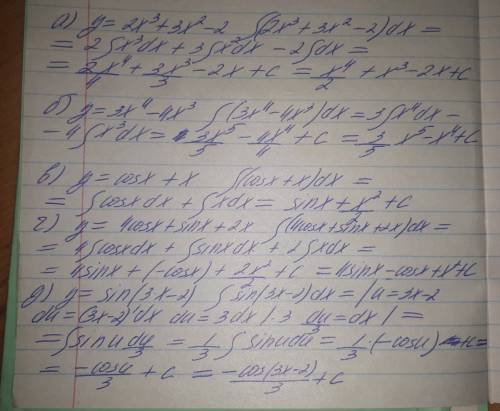 а) y=2x³+3x²-2 ∫(2x³+3x²-2)dx=
= 2∫x³dx+3∫x²dx-2∫dx=
= 2x⁴/4 + 3x³/3 - 2x+c = x⁴/2 + x³-2x+c
б) y=3x⁴-4x³ ∫(3x⁴-4x³)dx=3∫x⁴dx-
-4∫x³dx= 3x⁵/5 - 4x⁴/4 + c = 3/5 x⁵-x⁴+c
в) y=cosx+x ∫(cosx+x)dx=
=∫cosxdx+∫xdx= sinx+x²/2+c
г) y=4cosx+sinx+2x ∫(4cosx+sinx+2x)dx=
=4∫cosxdx+∫sinxdx+2∫xdx=
=4sinx+(-cosx)+2x²/2+c =4sinx-cosx+x²+c
д) y=sin(3x-2) ∫sin(3x-2)dx=|u=3x-2
du=(3x-2)'dx du=3dx|:3 du/3=dx|=
=∫sinu du/3 = 1/3 ∫sinudu= 1/3·(-cosu)+c=
= -cosu/3 +c = -cos(3x-2)/3 +c